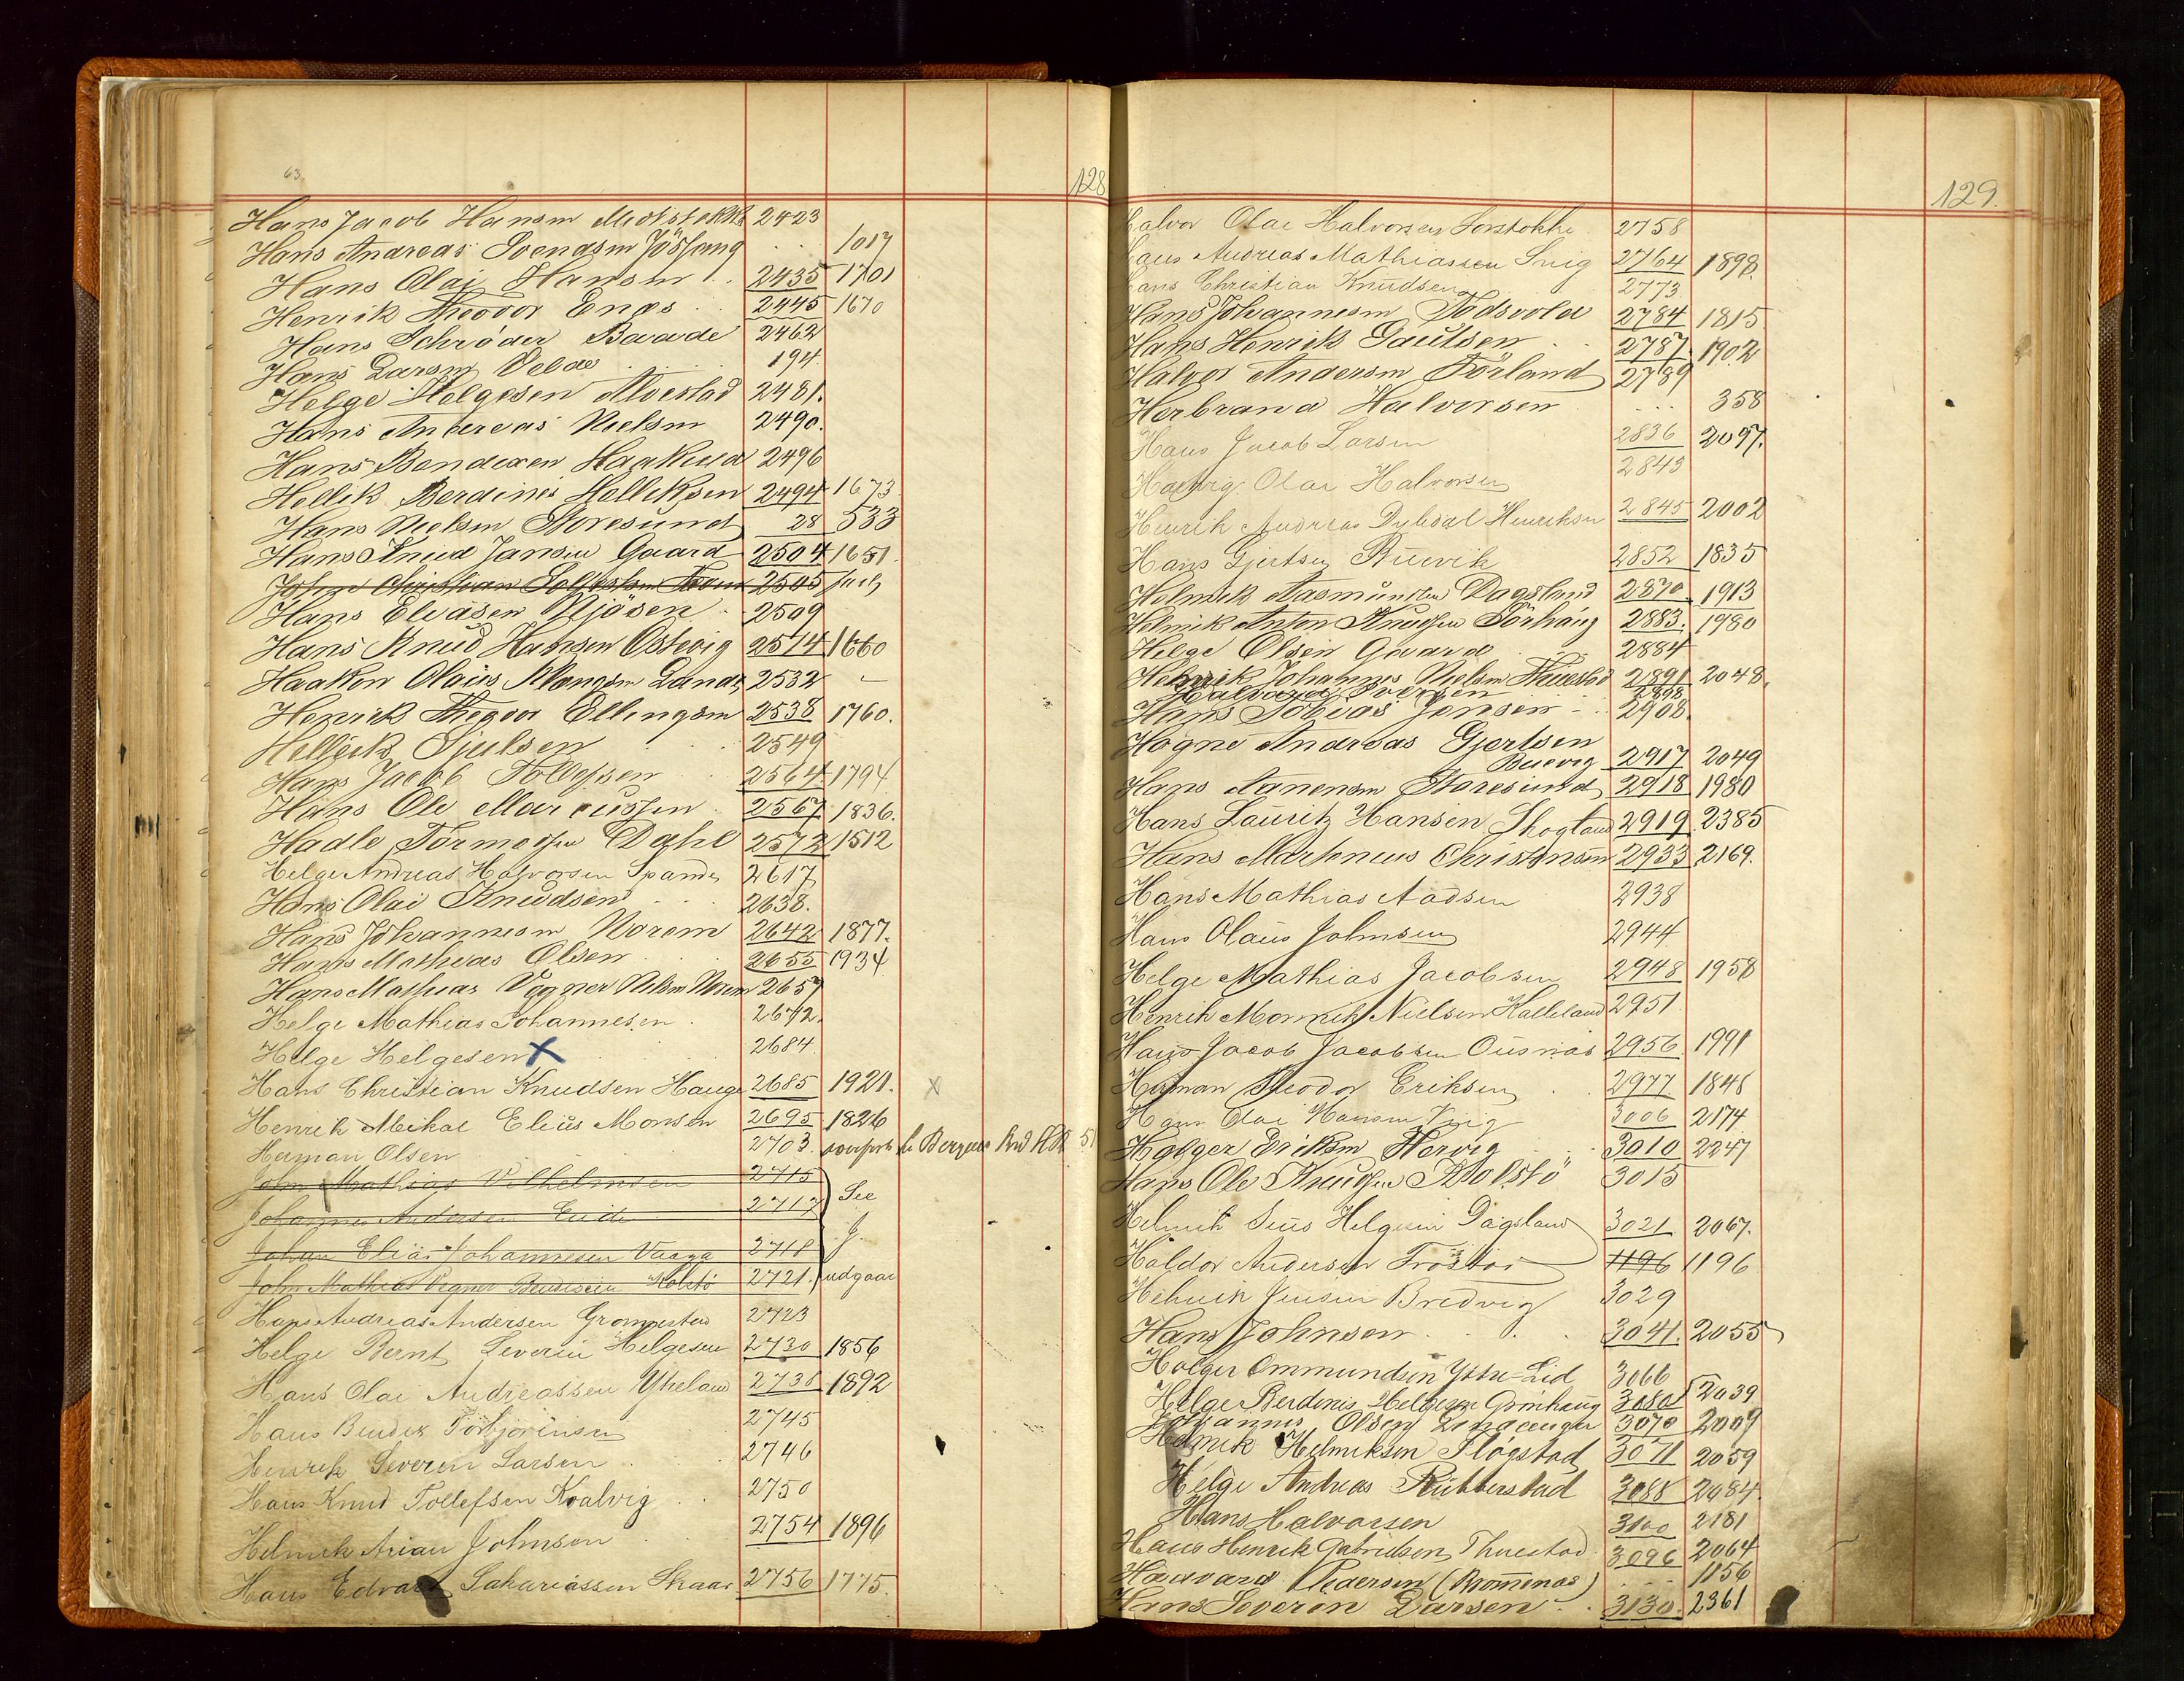 63.
128
Hans Jacob Hansen 2423
Hans Andreas Svendsen Jösfang 1017
Hans Olai Hansen 2435 1701
Henrik Theodor Enes 2445 1670
Hans Schrøder Baade 2462
Hans Larsen Velde 194
Helge Helgesen Alvestad 2481.
Hans Andreas Nielsen 2490.
Hans Bendixen Haakull 2496
Hellik Berdines Helliksen 2494 1673
Hans Nielsen Storesund 28 533
Hans Knud Jansen Gaard 2504 1651
Christian 2505
Hans Eliasen Mjösen 2509
Hans Knud Hansen Østvig 2514 1660
Haakon Olaus Mangsen 2532 —
Henrik Thegoor Ellingsen 2538 1760.
Helleik Sjulsen 2549
Hans Jacob Tollefsen 2564 1794
Hans Ole Marcussen 2567 1836.
Hadle Tormodsen Dahl 2572 1512
Helge Andreas Halvorsen Spanne 2617
Hans Olai Knudsen 2638.
Hans Johannesen Norem 2642 1877.
Hans Mathias Olsen 2655 1934
Hans Mathias Vagner Nilsen Norem 2657
Helge Mathias Johannesen 2672.
Helge Helgesen X 2684
Hans Christian Knudsen Hauge 2685 1921. X
Henrik Mikal Elius Monsen 2695 1826
Herman Olsen 2703
John Mathias Vilhelmsen 2715
Johannes Andersen Eide 2717 See
Johan Elias Johannesen Vaaga 2718 J.
John Mathias Vegner 2721. udgaar
Hans Andreas Andersen Gronnestad 2723
Helge Bernt Severin Helgesen 2730 1856
Hans Olai Andreassen Ytreland 2738 1892
Hans Bendix Torbjörnsen 2745
Henrik Severin Larsen 2746
Hans Knud Tollefsen Kvalvig 2750
Helmich Arian Johnsen 2754 1896
Hans Edvard Sakariassen Skaar 2756 1775.
129.
Halvor Olai Halvorsen Sorstokke 2758
Hans Andreas Mathiassen Snig 2764 1898.
Hans Christian Knudsen 2773
Hans Johannesen Todsvola 2784 1815
Hans Henrik Gautsen 2787 1902
Halvor Andersen Förland 2789
Herbrand Halvorsen 358
Hans Jacob Larsen 2836 2097.
Olai Halvorsen 2843
Henrik Andreas Dybdal Henriksen 2845 2002
Hans Gjertsen Buevik 2852 1835
Helmik Aasmundsen Dagsland 2870 1913
Helmik Anton Knudsen Törhaug 2883. 1980
Helge Olsen Gaard 2884
Henrik Johannes Nielsen 2891 2048.
Halvard Iversen 2898
Hans Tobias Jonsen 2908.
Hogne Andreas Gjertsen
Buevig 2917 2049
Hans Aanensen Storesund 2918 1980
Hans Lauritz Hansen Skogland 2919 2385
Hans Martinius Christensen 2933 2169.
Hans Mathias Aadsen 2938
Hans Olaus Johnsen 2944
Helge Mathias Jacobsen 2948 1958
Henrik Monrich Nielsen Kalleland 2951
Hans Jacob Jacobsen Ousnäs 2956 1991
Herman Theodor Eriksen 2977 1848
Hans Olai Hansen Viig 3006 2174
Holger Eriksen Hervig 3010 2247
Hans Ole Knudsen Kolstö 3015
Helmik Seüs Helgesen Dagsland 3021 2067.
Haldor Andersen 1196 1196
Helmich Jensen Bredvig 3029
Hans Johnsen 3041. 2055
Holger Ommundsen Ystre-Lid 3066
Helge Berdines Helgesen Grönhaug 3080 2039
Johannes Olsen 3070 2009
Helmik Helmiksen Flögstad 3071 2059
Helge Andreas 3088 2084.
Hans Halvorsen 3100 2181
Hans Henrik Gabrielsen Thuestad 3096 2064
Haavard Pedersen (Bromenas) 1156
Hans Severin Larsen 3130. 2361